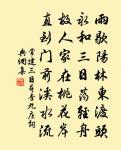 雨歇楊林東渡頭
永和三日蕩輕舟
故人家在桃花岸
直到門前溪水流
常建三日尋李九莊詞
典網集